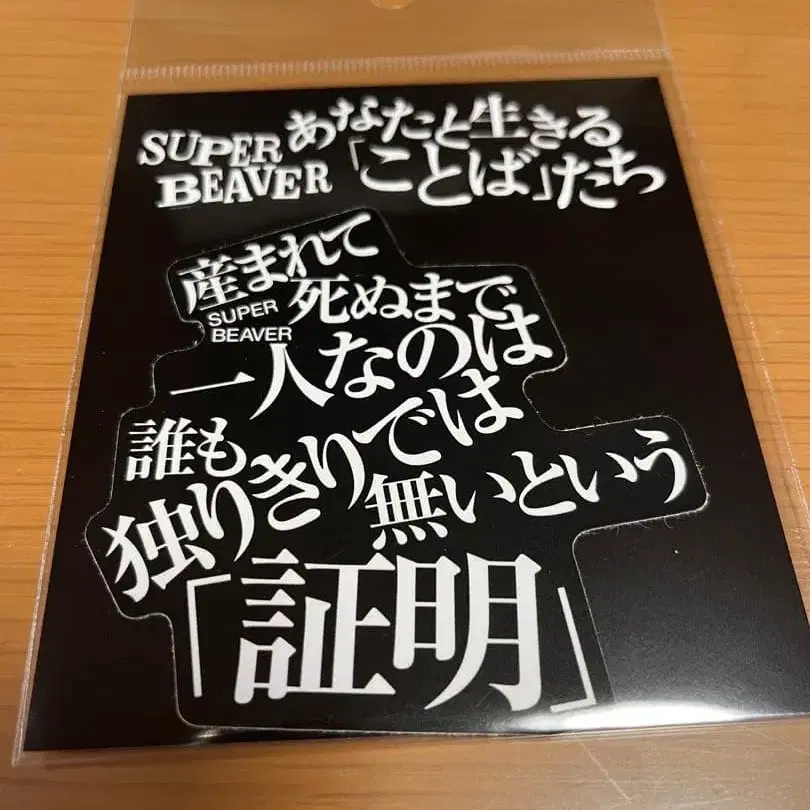 SUPER BEAVER
あなたと生きる
「ことば」たち
産まれて
SUPER BEAVER
死ぬまで
一人なのは
誰も
独りきりでは
無いという
「証明」